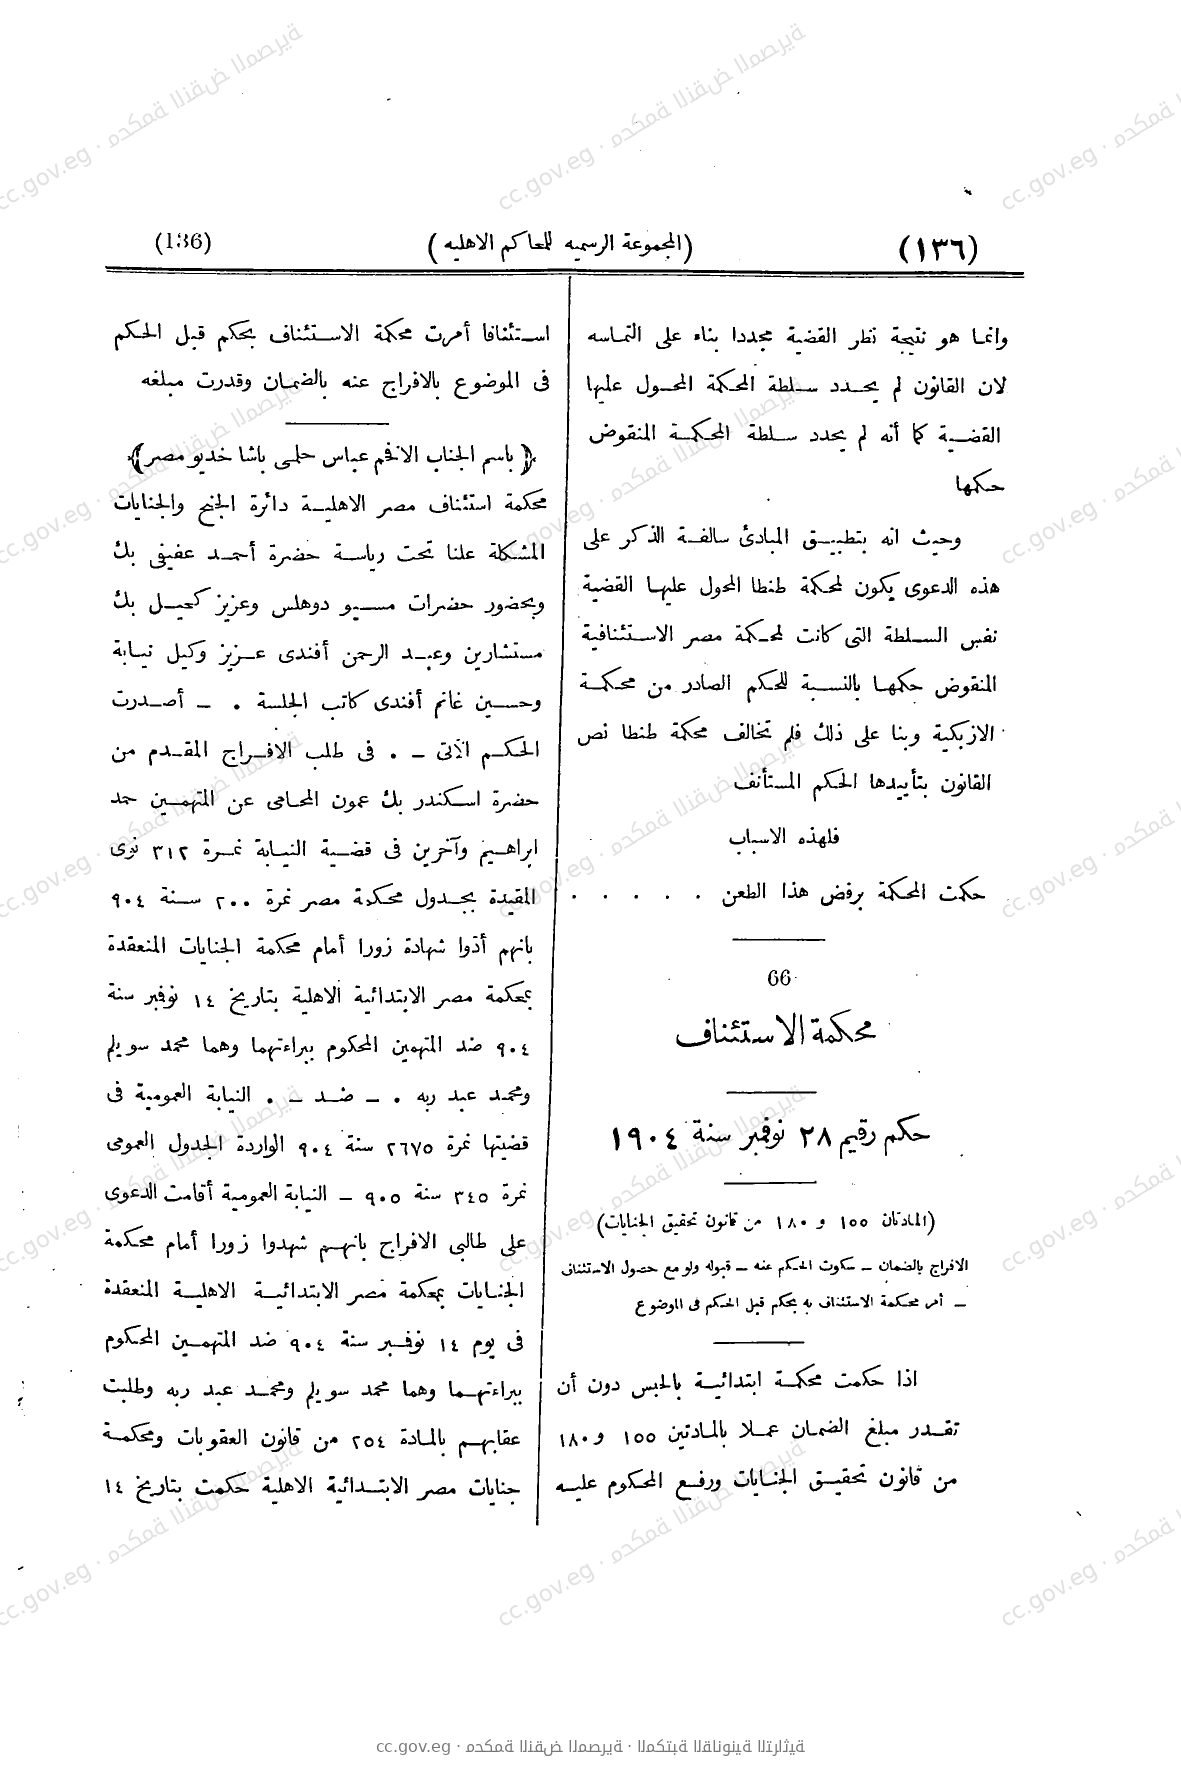 (١٣٦)
(المجموعة الرسمية للمحاكم الاهليه)
(136)
وانما هو نتيجة نظر القضية مجددا بناء على التماسه
لان القانون لم يحدد سلطة المحكمة المحول عليها
القضية كما أنه لم يحدد سلطة المحكمة المنقوض
حكمها
وحيث انه بتطبيق المبادئ سالفة الذكر على
هذه الدعوى يكون لمحكمة طنطا المحول عليها القضية
نفس السلطة التى كانت لمحكمة مصر الاستئنافية
المنقوض حكمها بالنسبة للحكم الصادر من محكمة
الازبكية وبنا على ذلك فلم تخالف محكمة طنطا نص
القانون بتأييدها الحكم المستأنف
فلهذه الاسباب
حكمت المحكمة برفض هذا الطعن . . . . .
66
محكمة الاستئناف
حكم رقيم ٢٨ نوفمبر سنة ١٩٠٤
(المادتان ١٥٥ و ١٨٠ من قانون تحقيق الجنايات)
الافراج بالضمان – سكوت الحكم عنه – قبوله ولو مع حصول الاستئناف
– أمر محكمة الاستئناف به بحكم قبل الحكم فى الموضوع
اذا حكمت محكمة ابتدائية بالحبس دون أن
تقدر مبلغ الضمان عملا بالمادتين ١٥٥ و١٨٠
من قانون تحقيق الجنايات ورفع المحكوم عليه
استئنافا أمرت محكمة الاستئناف بحكم قبل الحكم
فى الموضوع بالافراج عنه بالضمان وقدرت مبلغه
﴿ باسم الجناب الافخم عباس حلمى باشا خديو مصر ﴾
محكمة استئناف مصر الاهلية دائرة الجنح والجنايات
المشكلة علنا تحت رياسة حضرة أحمد عفيفى بك
وبحضور حضرات مسيو دوهلس وعزيز كحيل بك
مستشارين وعبد الرحمن أفندى عزيز وكيل نيابة
وحسين غانم أفندى كاتب الجلسة . – أصدرت
الحكم الآتى – . فى طلب الافراج المقدم من
حضرة اسكندر بك عمون المحامى عن المتهمين حمد
ابراهيم وآخرين فى قضية النيابة نمرة ٣١٢ نوى
المقيدة بجدول محكمة مصر نمرة ٢٠٠ سنة ٩٠٤
بانهم أدوا شهادة زورا أمام محكمة الجنايات المنعقدة
بمحكمة مصر الابتدائية الاهلية بتاريخ ١٤ نوفمبر سنة
٩٠٤ ضد المتهمين المحكوم ببراءتهما وهما محمد سويلم
ومحمد عبد ربه . – ضد – . النيابة العمومية فى
قضيتها نمرة ٢٦٧٥ سنة ٩٠٤ الواردة الجدول العمومى
نمرة ٣٤٥ سنة ٩٠٥ – النيابة العمومية أقامت الدعوى
على طالبى الافراج بانهم شهدوا زورا أمام محكمة
الجنايات بمحكمة مصر الابتدائية الاهلية المنعقدة
فى يوم ١٤ نوفمبر سنة ٩٠٤ ضد المتهمين المحكوم
ببراءتهما وهما محمد سويلم ومحمد عبد ربه وطلبت
عقابهم بالمادة ٢٥٤ من قانون العقوبات ومحكمة
جنايات مصر الابتدائية الاهلية حكمت بتاريخ ١٤
cc.gov.eg · محكمة النقض المصرية · المكتبة القانونية التراثية